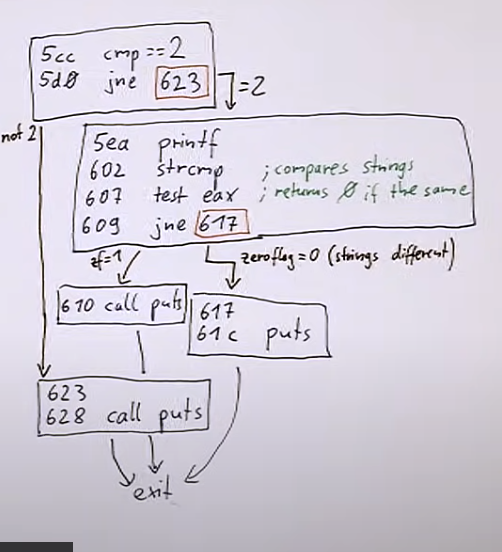 5cc cmp == 2
5d0 jne 623
=2
not 2
5ea printf
602 strcmp ; compares strings
607 test eax ; returns 0 if the same
609 jne 617
zf=1
zeroflag=0 (strings different)
610 call puts
617
61c puts
623
628 call puts
exit